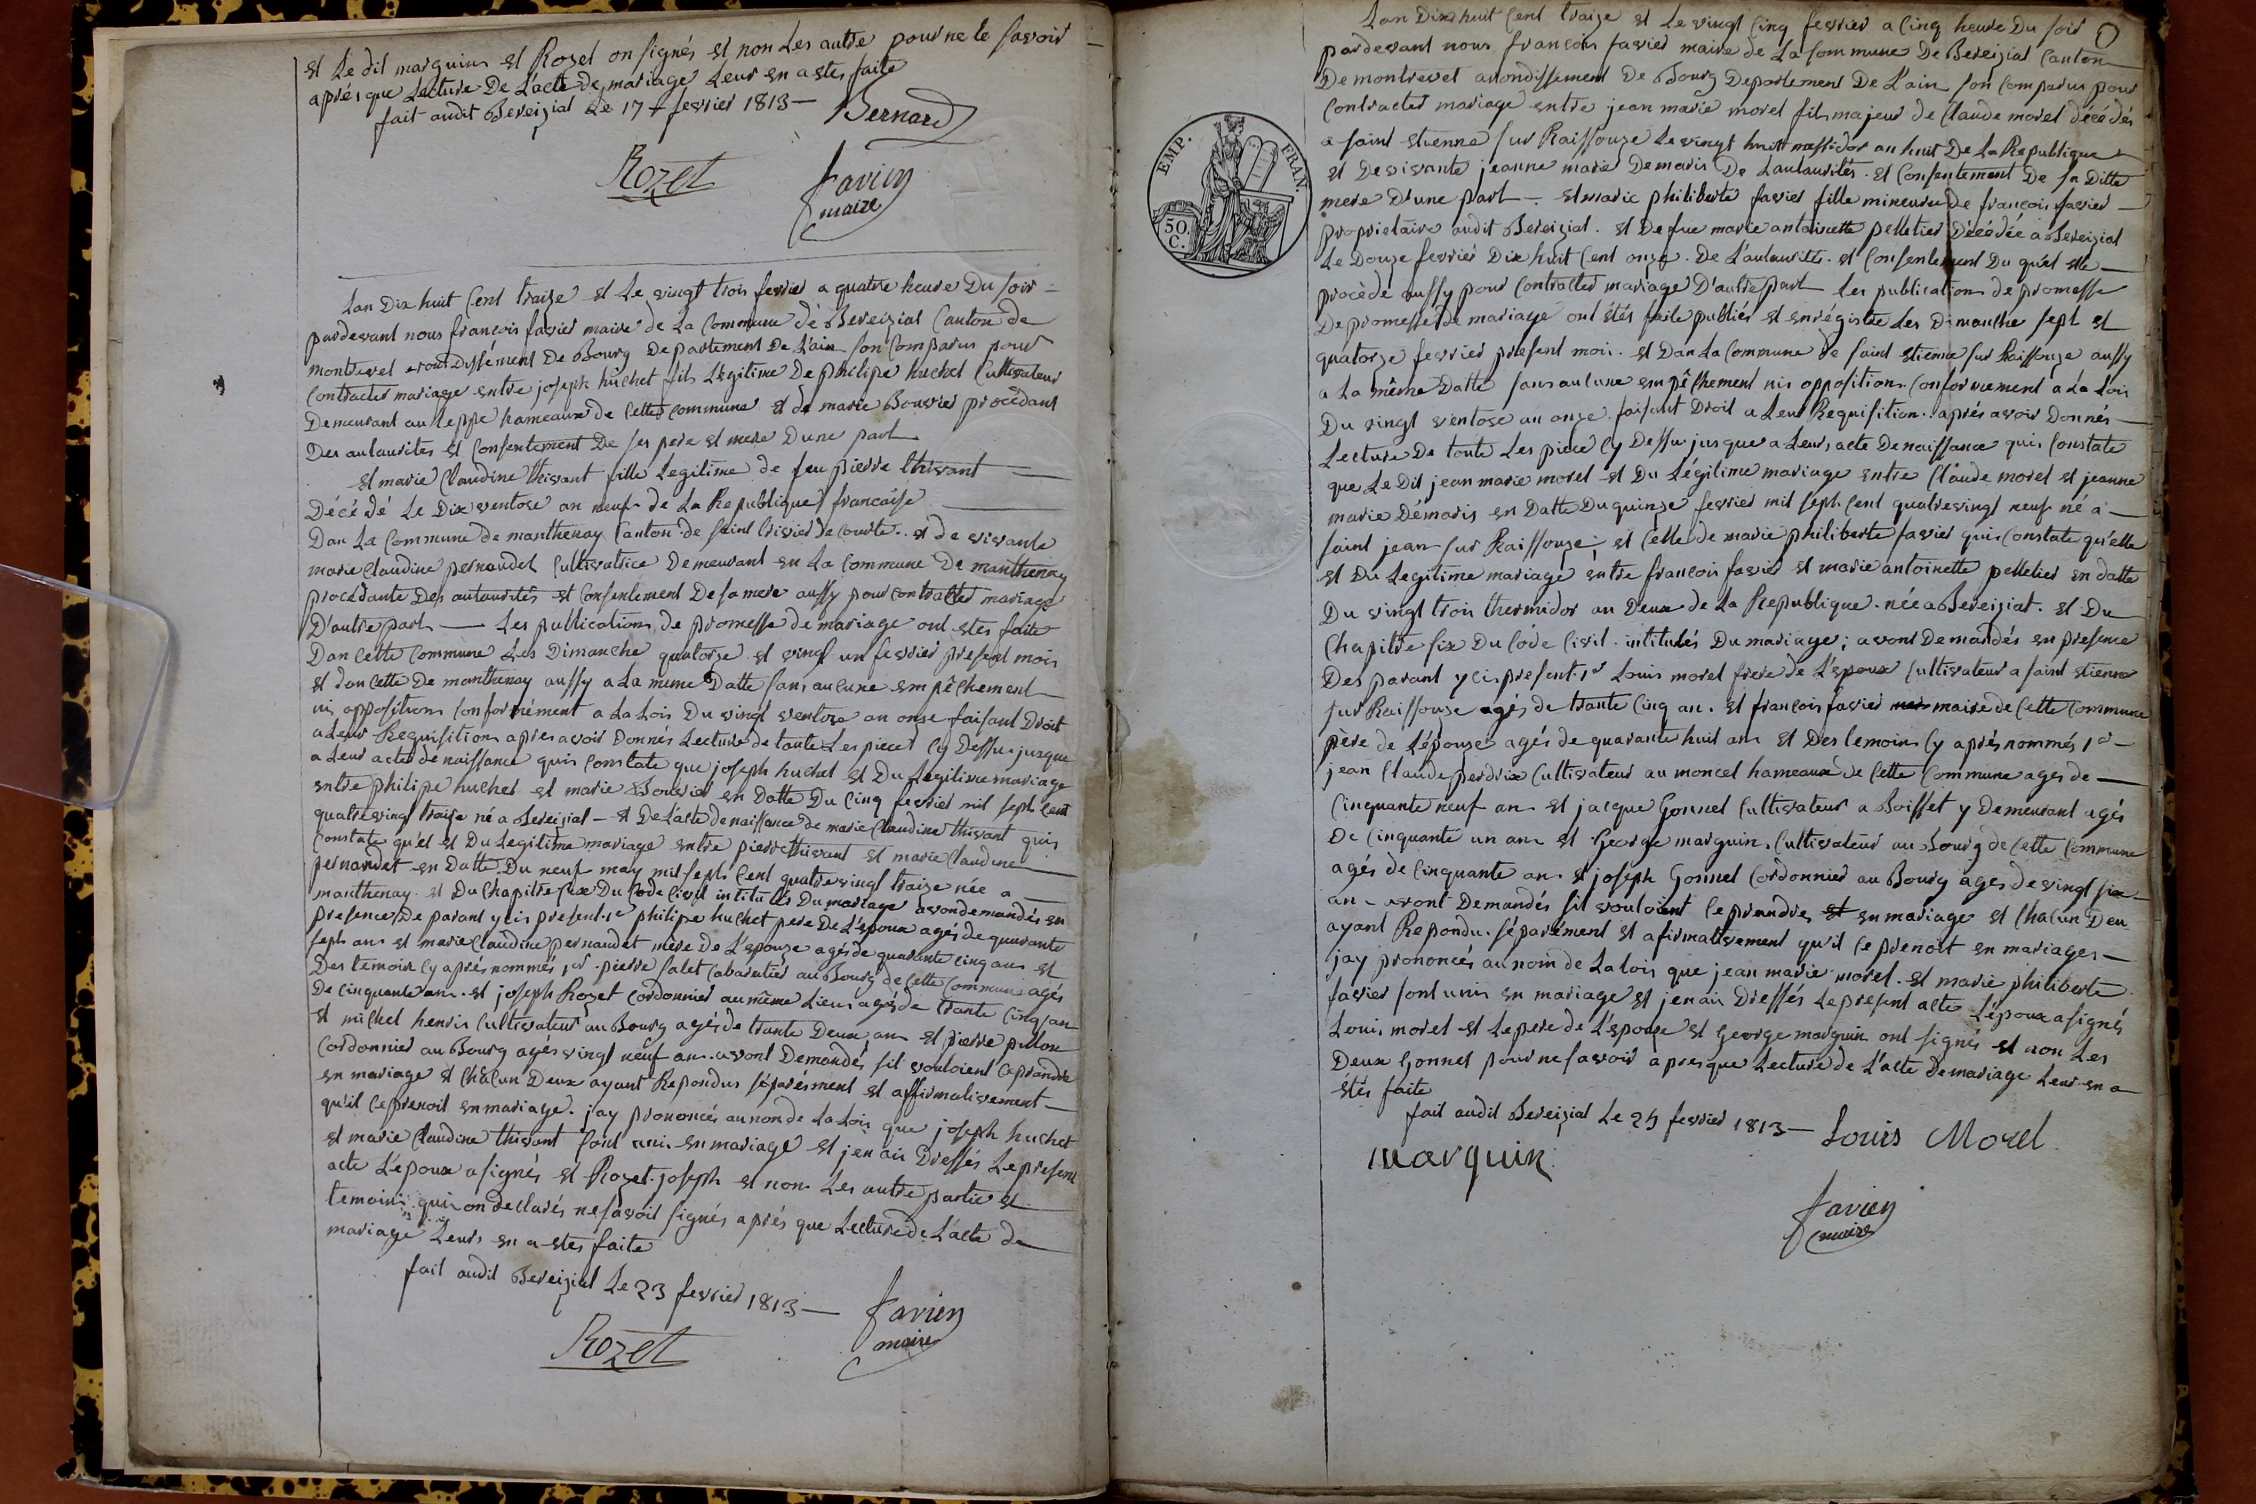 et Le dit marguin et Rozet on signés et non Les autre pour ne le savoir
aprés que Lecture De L'acte de mariage Leur en a etes faite
fait audit Bereiziat Le 17 fevrier 1813 — Bernard
Rozet
favier
maire
Lan Dix huit Cent traize et Le vingt trois fevrier a quatre heure Du soir
pardevant nous françois favier maire de La Commune de Bereiziat Canton de
montrevel arondissement De Bourg Departement De L'ain son Comparus pour
Contracter mariage entre joseph huchet fils Legitime De philipe huchet Cultivateur
Demeurant au hameaux de Cette commune et de marie Bouvier procèdant
Des autaurités et Consentement De ses pere et mere Dune part
et marie Claudine thivant fille Legitime de feu pierre thivant
Décédé Le Dix ventose an neuf de La Republique francaise
Dan La Commune de manthenay Canton de saint trivier de Courte. et de vivante
marie Claudine pernaudet Cultivatrice Demeurant en La Commune De manthenay
procédante Des autaurités et Consentement De sa mere aussy pour contracter mariage
D'autre part — Les publication de promesse de mariage ont etes faite
Dan Cette Commune Les Dimanche quatorze et vingt un fevrier present mois
et dan Cette De manthenay aussy a La meme Datte sans aucune empêchement
ni opposition Conformément a La Lois Du vingt ventose an onze faisant Droit
a Leur Requisition apres avoir Donnés Lecture de toute Les piece Cy Dessu jusque
a Leur acte de naissance quis Constate que joseph huchet et Du Legitime mariage
entre philipe huchet et marie Bouvier en Datte Du Cinq fevrier mil sept Cent
quatrevingt traize né a Bereiziat — et De L'acte de naissance de marie Claudine thivant quis
Constate qu'el et Du Legitime mariage entre pierre thivant et marie Claudine
pernaudet en Datte Du neuf may mil sept Cent quatrevingt traize née a
manthenay et Du Chapitre six Du Code Civil intitulés Du mariage avon demandés en
presence De parant y cis present 1er philipe huchet pere De L'epoux agés de quarante
sept ans et marie Claudine pernaudet mere De L'epouze agés de quarante cinq ans et
Des temoin Cy aprés nommés 1er pierre salet Cabaretier au Bourg de Cette Commune agés
De Cinquante ans. et joseph Rozet Cordonnier au même Lieu agés de trante Cinq an
et michel henris Cultivateur au Bourg agés de trante Deux ans et pierre
Cordonnier au Bourg agés vingt neuf ans. avont Demandés sil vouloient ce prandre
en mariage et Chacun Deux ayant Repondus séparément et affirmativement
qu'il ce prenoit en mariage. jay prononcés au non de La Lois que joseph huchet
et marie Claudine thivant sont unis en mariage et jen ais Dressés Le present
acte L'epoux a signés et Rozet joseph et non Les autre partie et
temoins quis on declarés ne savoir signés aprés que Lecture De L'acte de
mariage Leurs en a etes faite
fait audit Bereiziat Le 23 fevrier 1813 —
Rozet
favier
maire
Lan Dixhuit Cent traize et Le vingt Cinq fevrier a Cinq heure Du soir
pardevant nous françois favier maire de La Commune De Bereiziat Canton
De montrevel arondissement De Bourg Departement De L'ain son Comparus pour
Contracter mariage entre jean marie morel fils majeur de Claude morel décédés
EMP. FRAN.
50. C.
a saint etienne sur Raissouze Le vingt huit messidor an huit De La Republique
et De vivante jeanne marie Demaris De Lautaurités. et Consentement De sa Ditte
mere D'une part — et marie philiberte favier fille mineure de françois favier
proprietaire audit Bereiziat. et De fue marie antoinette pelletier Décédée a Bereiziat
Le Douze fevrier Dix huit Cent onze. De L'autaurités. et Consentement Du quel elle
procède aussy pour Contracter mariage D'autre part Les publication de promesse
De promesse de mariage ont étés faite publiés et enrégistre Les Dimanche sept et
quatorze fevrier present mois. et Dan La Commune de saint etienne sur Raissouze aussy
a La même Datte sans aucune empêchement nis opposition Conformement a La Lois
Du vingt ventose an onze faisant Droit a Leur Requisition. aprés avoir Donnés
Lecture De toute Les piece Cy Dessu jusque a Leurs acte De naissance quis Constate
que Le Dit jean marie morel et Du Légitime mariage entre Claude morel et jeanne
marie Démaris en Datte Du quinze fevrier mil sept Cent quatrevingt neuf né a
saint jean sur Raissouze; et Celle de marie philiberte favier quis Constate qu'elle
et Du Legitime mariage entre francois favier et marie antoinette pelletier en datte
Du vingt trois thermidor an Deux de La Republique. née a Bereiziat. et Du
Chapitre six Du Code Civil intitulés Du mariage; avont Demandés en presence
Des parant y cis present 1er Louis morel frere de L'epoux Cultivateur a saint etienne
sur Raissouze agés de trante Cinq an. et françois favier maire de Cette Commune
père de L'épouze agés de quarante huit ans et Des temoins Cy aprés nommés 1er
jean Claude perdrix Cultivateur au moncel hameaux de Cette Commune ages de
Cinquante neuf ans et jacque Gonnet Cultivateur a Boisset y Demeurant agés
De Cinquante un ans et George marguin Cultivateur au Bourg de Cette Commune
agés de Cinquante ans et joseph Gonnet Cordonnier au Bourg ages de vingt six
an — avont Demandés sil vouloient ce prandre et en mariage et Chacun Deu
ayant Repondu séparément et afirmativement qu'il ce prenoit en mariages —
jay prononcés au nom de La Lois que jean marie morel. et marie philiberte
favier sont unis en mariage et jen ais Dressés Le present acte L'époux a signés
Louis morel et Le pere de L'epouze et George marguin ont signés et non Les
Deux Gonnet pour ne savoir apres que Lecture de L'acte de mariage Leur en a
étés faite
fait audit Bereiziat Le 25 fevrier 1813 — Louis Morel
marguin
favier
maire